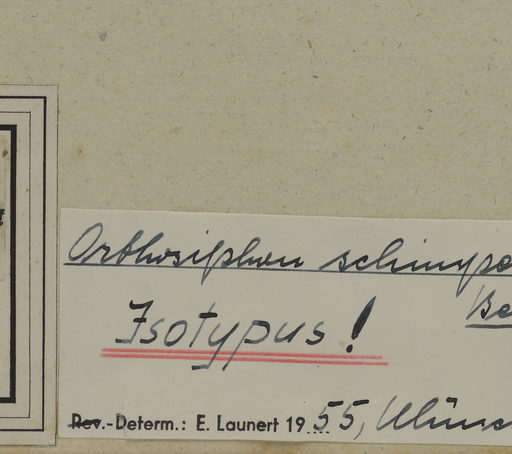 Orthosiphon schimpe
Be
Isotypus!
Rev.-Determ.: E. Launert 1955, Münc